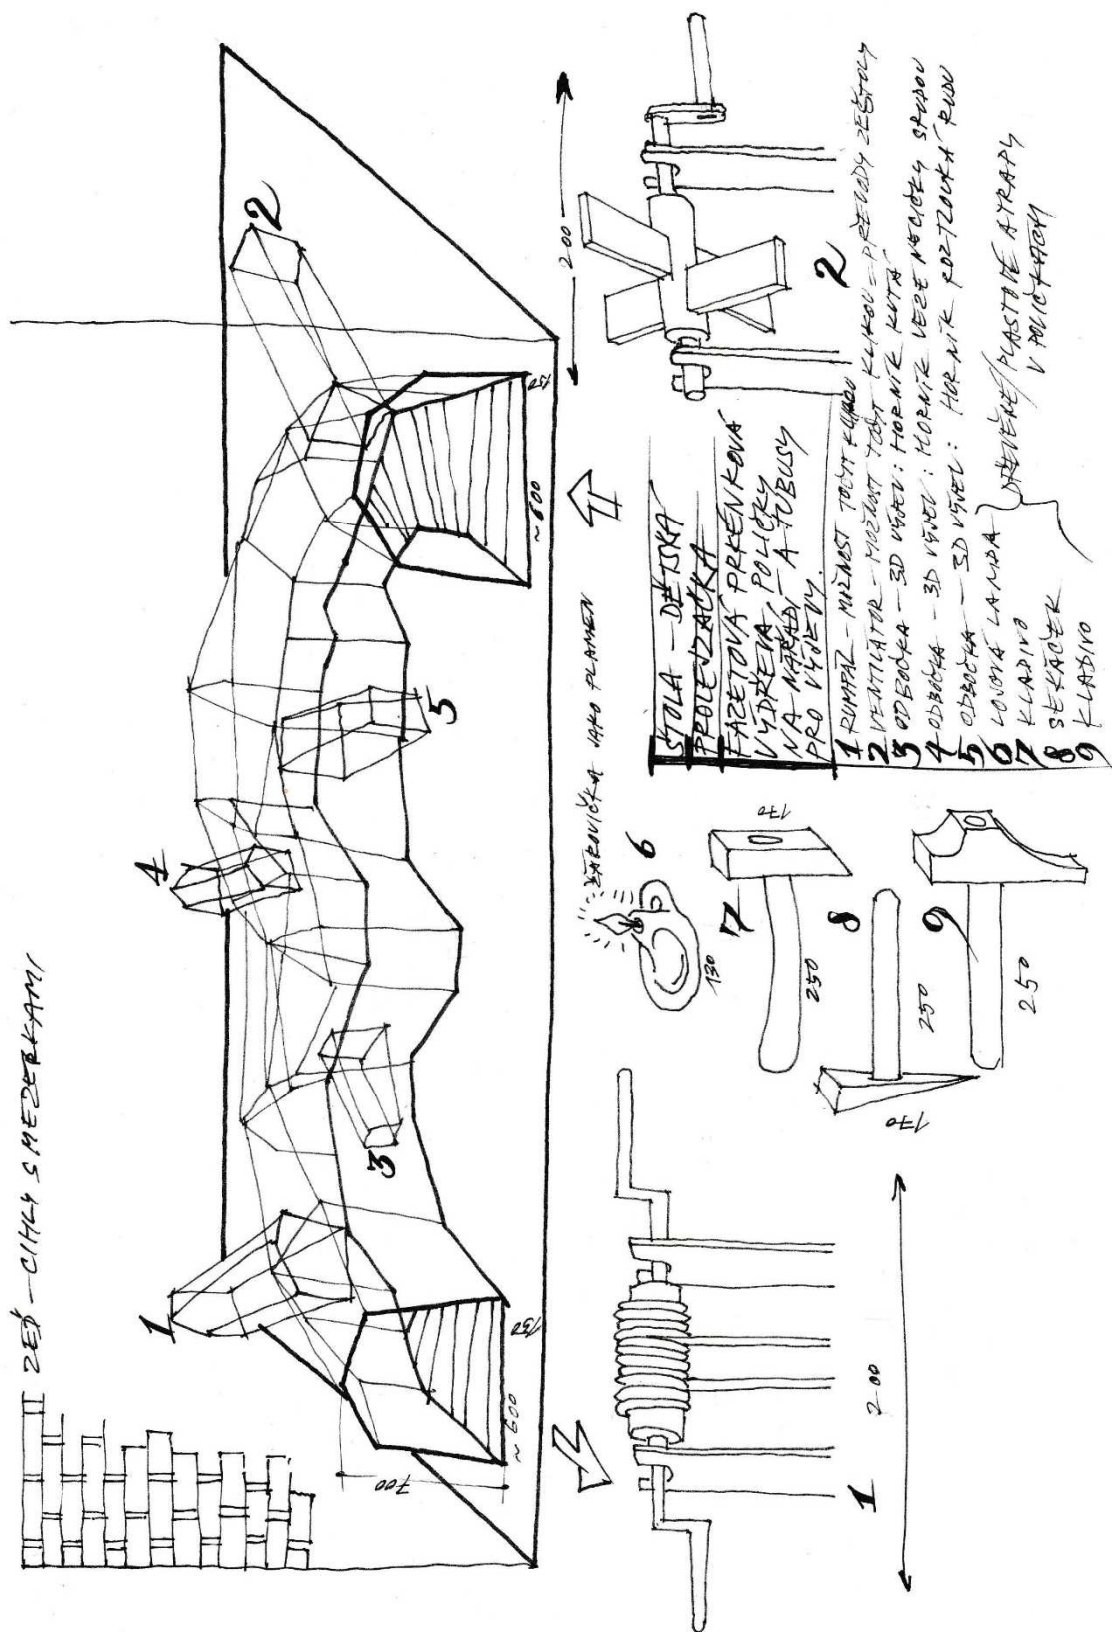 ZEĎ – CIHLY S MEZERKAMI
1
2
3
4
5
700
~600
150
~600
150
200
ŽÁROVIČKA JAKO PLAMEN
6
130
7
250
170
8
250
170
9
250
1
200
2
ŠTOLA – DĚTSKÁ
PROLEJZAČKA
FAZETOVÁ PRKÉNKOVÁ
VÝDŘEVA, POLIČKY
NA NÁŘADÍ – A TUBUSY
PRO VÝJEVY.
1 RUMPÁL – MOŽNOST TOČIT KLIKOU
2 VENTILÁTOR – MOŽNOST TOČIT KLIKOU = PŘEVODY ZE ŠTOLY
3 ODBOČKA – 3D VÝJEV: HORNÍK KUTÁ
4 ODBOČKA – 3D VÝJEV: HORNÍK VEZE NECIČKY S RUDOU
5 ODBOČKA – 3D VÝJEV: HORNÍK ROZTLOUKÁ RUDU
6 LOJOVÁ LAMPA
7 KLADIVO
8 SEKÁČEK
9 KLADIVO
DŘEVĚNÉ/PLASTOVÉ ATRAPY
V POLIČKÁCH